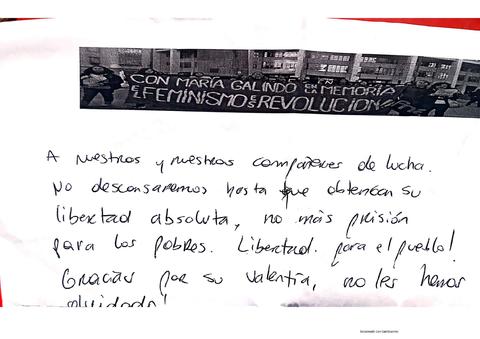 CON MARÍA GALINDO EN LA MEMORIA
EL FEMINISMO ES REVOLUCION
A nuestros y nuestras compañeres de lucha.
No descansaremos hasta que obtengan su
libertad absoluta, no más prisión
para los pobres. Libertad para el pueblo!
Gracias por su valentía, no les hemos
olvidado!